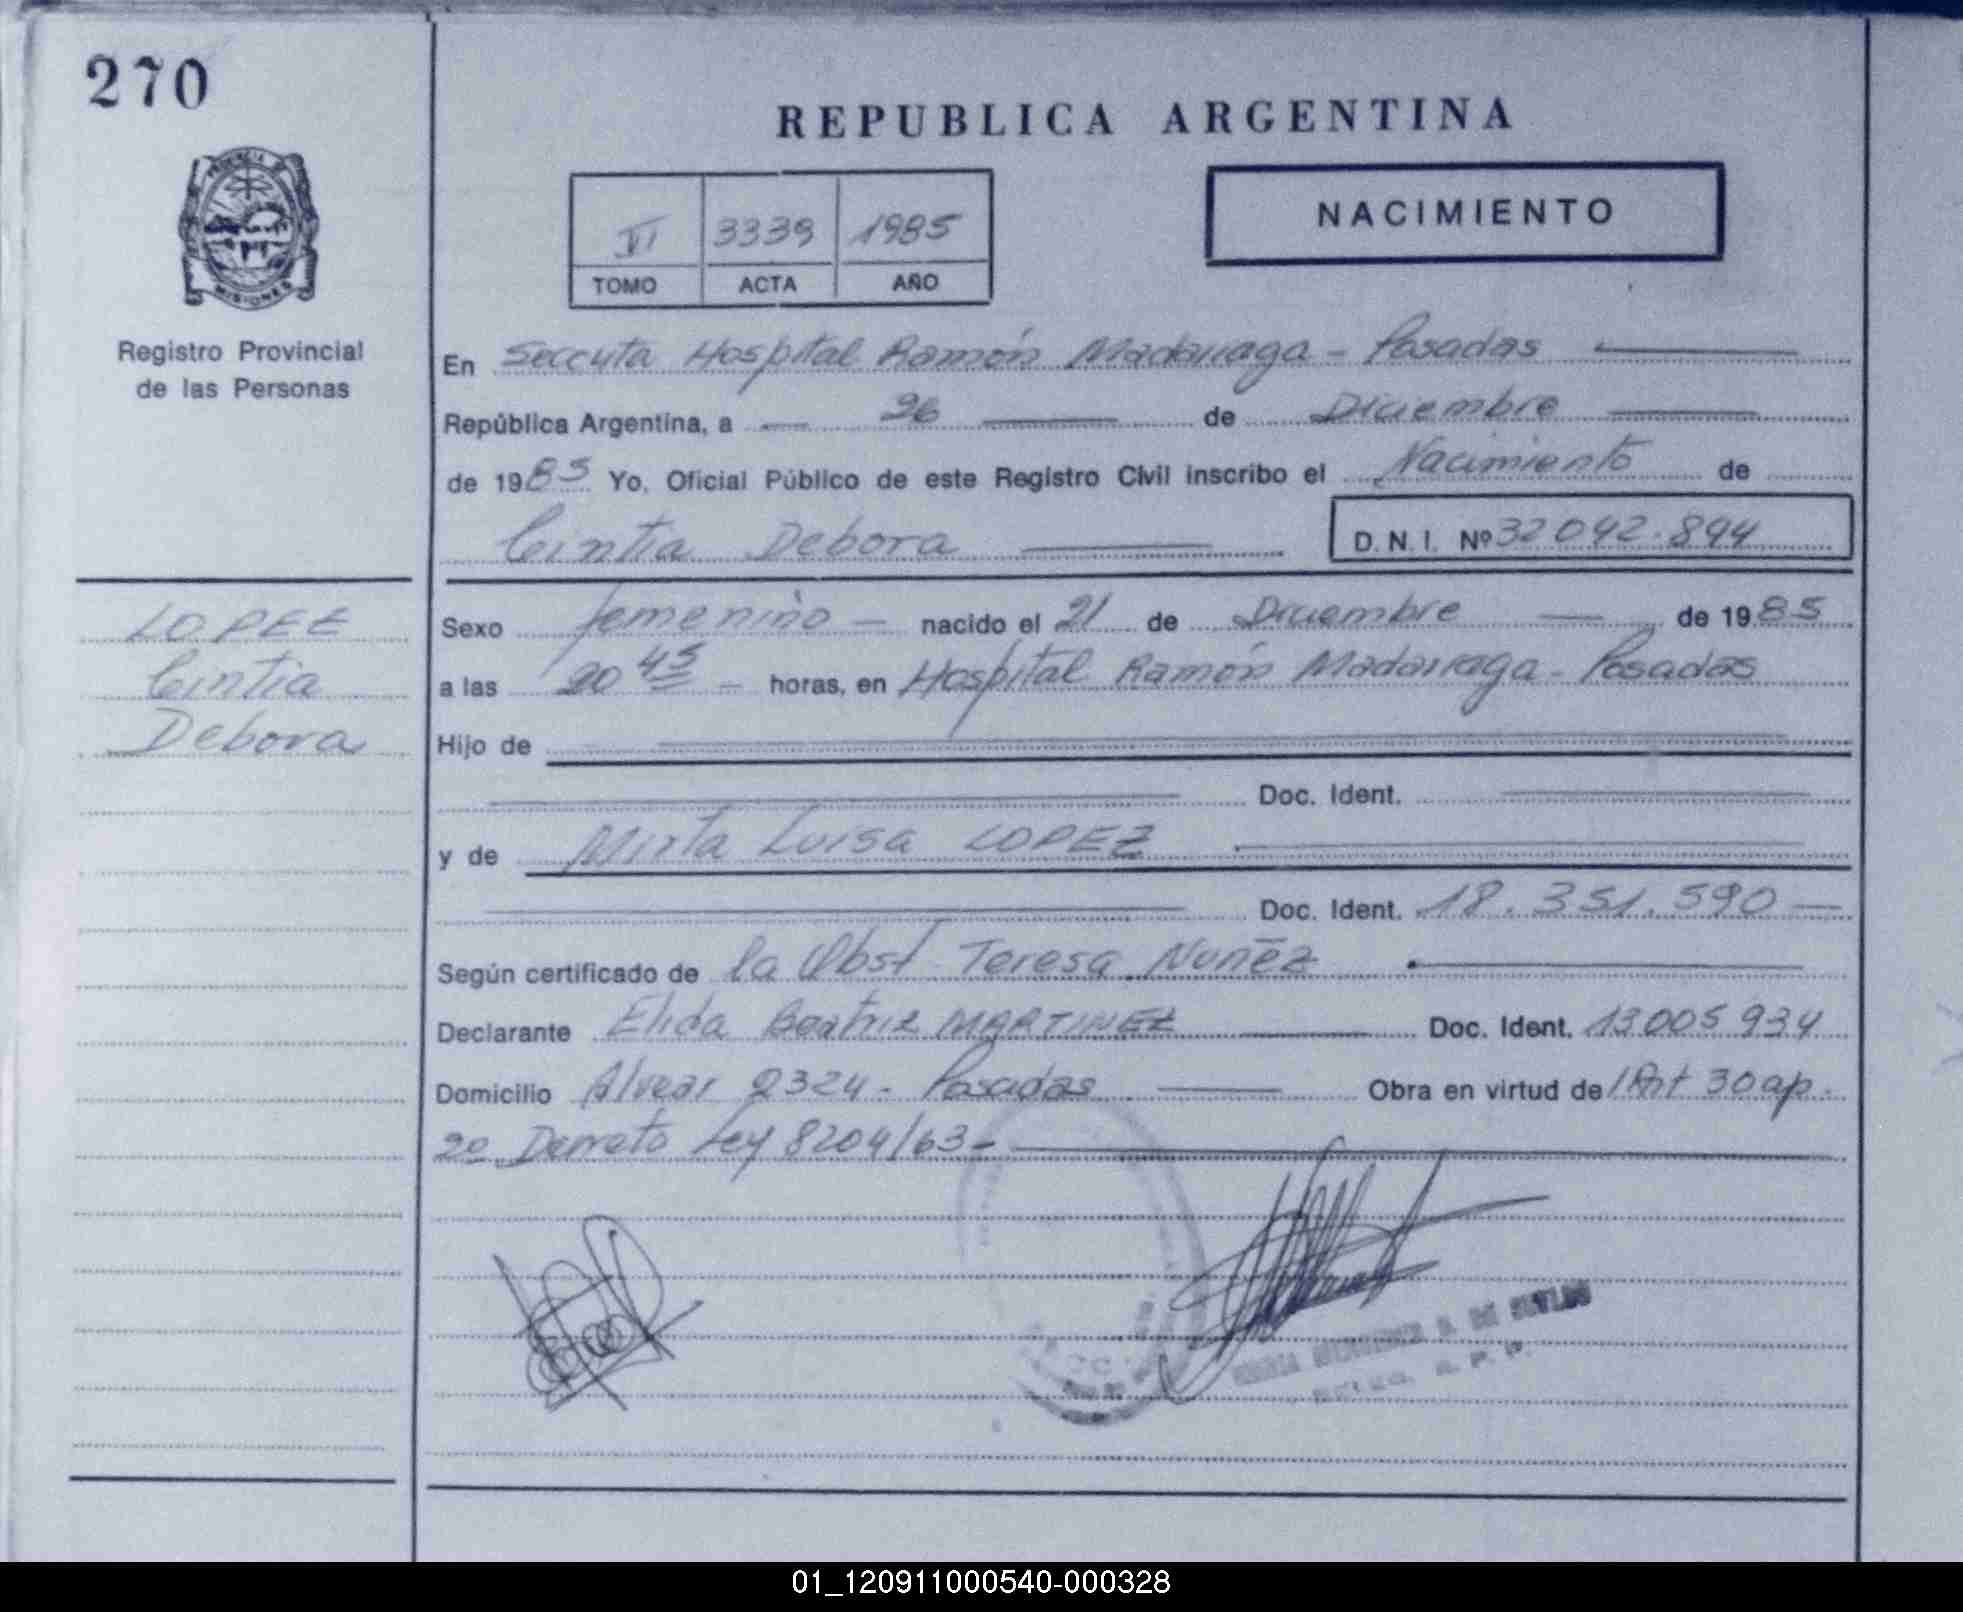 270
REPUBLICA ARGENTINA
NACIMIENTO
VI 3339 1985
TOMO ACTA AÑO
PROVINCIA DE
MISIONES
Registro Provincial
de las Personas
En Seccuta Hospital Ramón Madariaga - Posadas
República Argentina, a 26 de Diciembre
de 1985 Yo, Oficial Público de este Registro Civil inscribo el Nacimiento de
Cintia Debora D.N.I. Nº 32042.894
LOPEZ
Cintia
Debora
Sexo femenino - nacido el 21 de Diciembre de 1985
a las 20 45 - horas, en Hospital Ramón Madariaga - Posadas
Hijo de
Doc. Ident.
y de Mirta Luisa LOPEZ
Doc. Ident. 18.351.590 -
Según certificado de la Obst Teresa Nuñez
Declarante Elida Beatriz MARTINEZ Doc. Ident. 13005934
Domicilio Alvear 2324 - Posadas Obra en virtud de l Art 30 ap.
2º Decreto Ley 8204/63 -
01_120911000540-000328